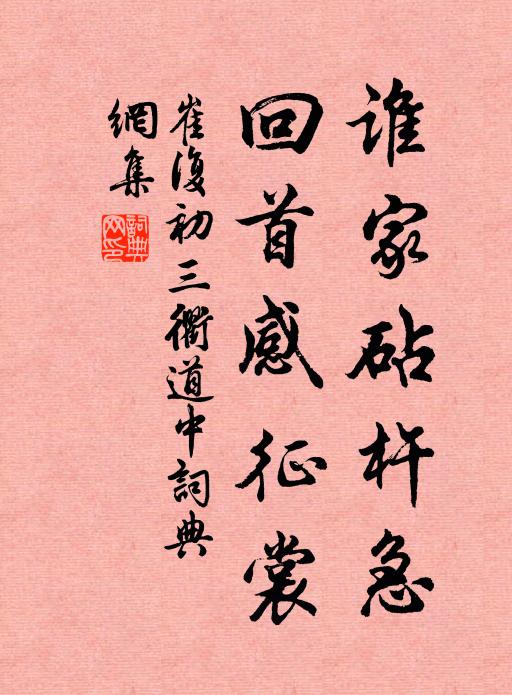 谁家砧杵急
回首感征裳
崔復初三衢道中詞典
網集
詞典
网印